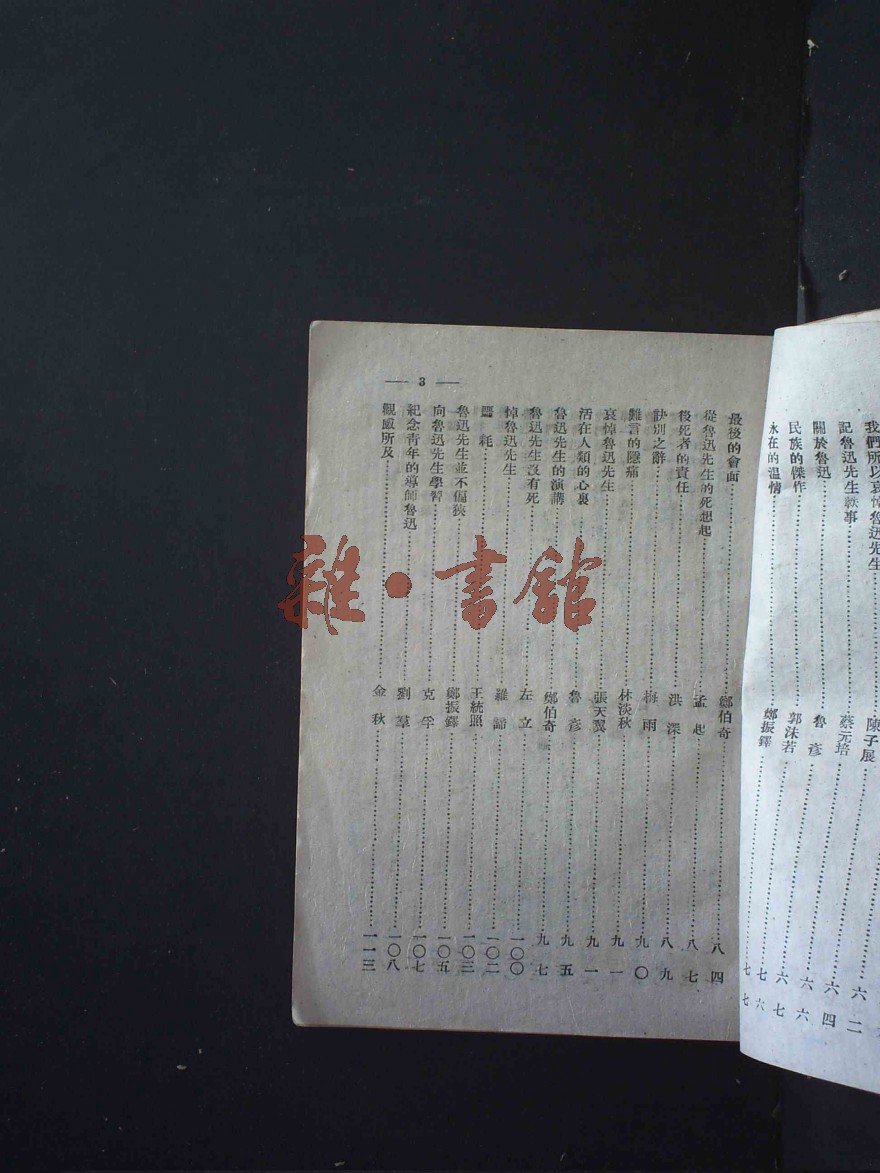 我們所以哀悼魯迅先生……陳子展……六二
記魯迅先生軼事……蔡元培……六四
關於魯迅……魯彥……六六
民族的傑作……郭沫若……六七
永在的溫情……鄭振鐸……七六
七七
— 3 —
最後的會面……鄭伯奇……八四
從魯迅先生的死想起……孟起……八七
後死者的責任……洪深……八九
訣別之辭……梅雨……九〇
難言的隱痛……林淡秋……九一
哀悼魯迅先生……張天翼……九一
活在人類的心裏……魯彥……九五
魯迅先生的演講……鄭伯奇……九七
魯迅先生沒有死……左立……一〇〇
悼魯迅先生……羅諦……一〇二
噩耗……王統照……一〇三
魯迅先生並不偏狹……鄭振鐸……一〇五
向魯迅先生學習……克孚……一〇七
紀念青年的導師魯迅……劉羣……一〇八
觀感所及……金秋……一一三
雜·書館